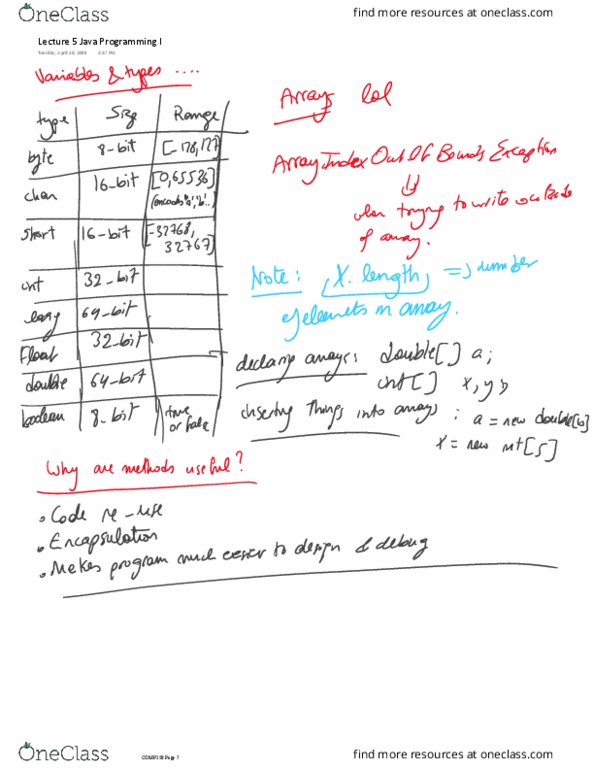 OneClass
find more resources at oneclass.com
Lecture 5 Java Programming I
Tuesday, April 10, 2018
Variables & types ....
type Size Range
byte 8-bit [-128,127]
char 16-bit [0,65536]
short 16-bit [-32768, 32767]
int 32-bit
long 64-bit
Float 32-bit
double 64-bit
boolean 8-bit true or false
Arrays lol
ArrayIndexOutOfBoundsException
when trying to write outside
of array.
Note: X.length => number
of elements in array.
declaring arrays: double[] a;
int[] x,y;
inserting things into arrays: a = new double[10]
x = new int[5]
Why are methods useful?
• Code re-use
• Encapsulation
• Makes program much easier to design & debug
OneClass
Page 1
find more resources at oneclass.com